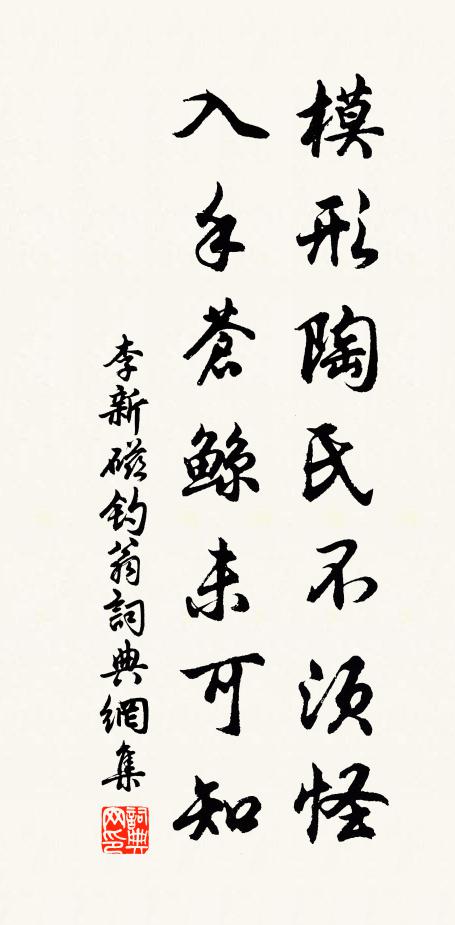 模形陶氏不須怪
入手蒼鯨未可知
李新磁釣翁詞典網集
詞典網印